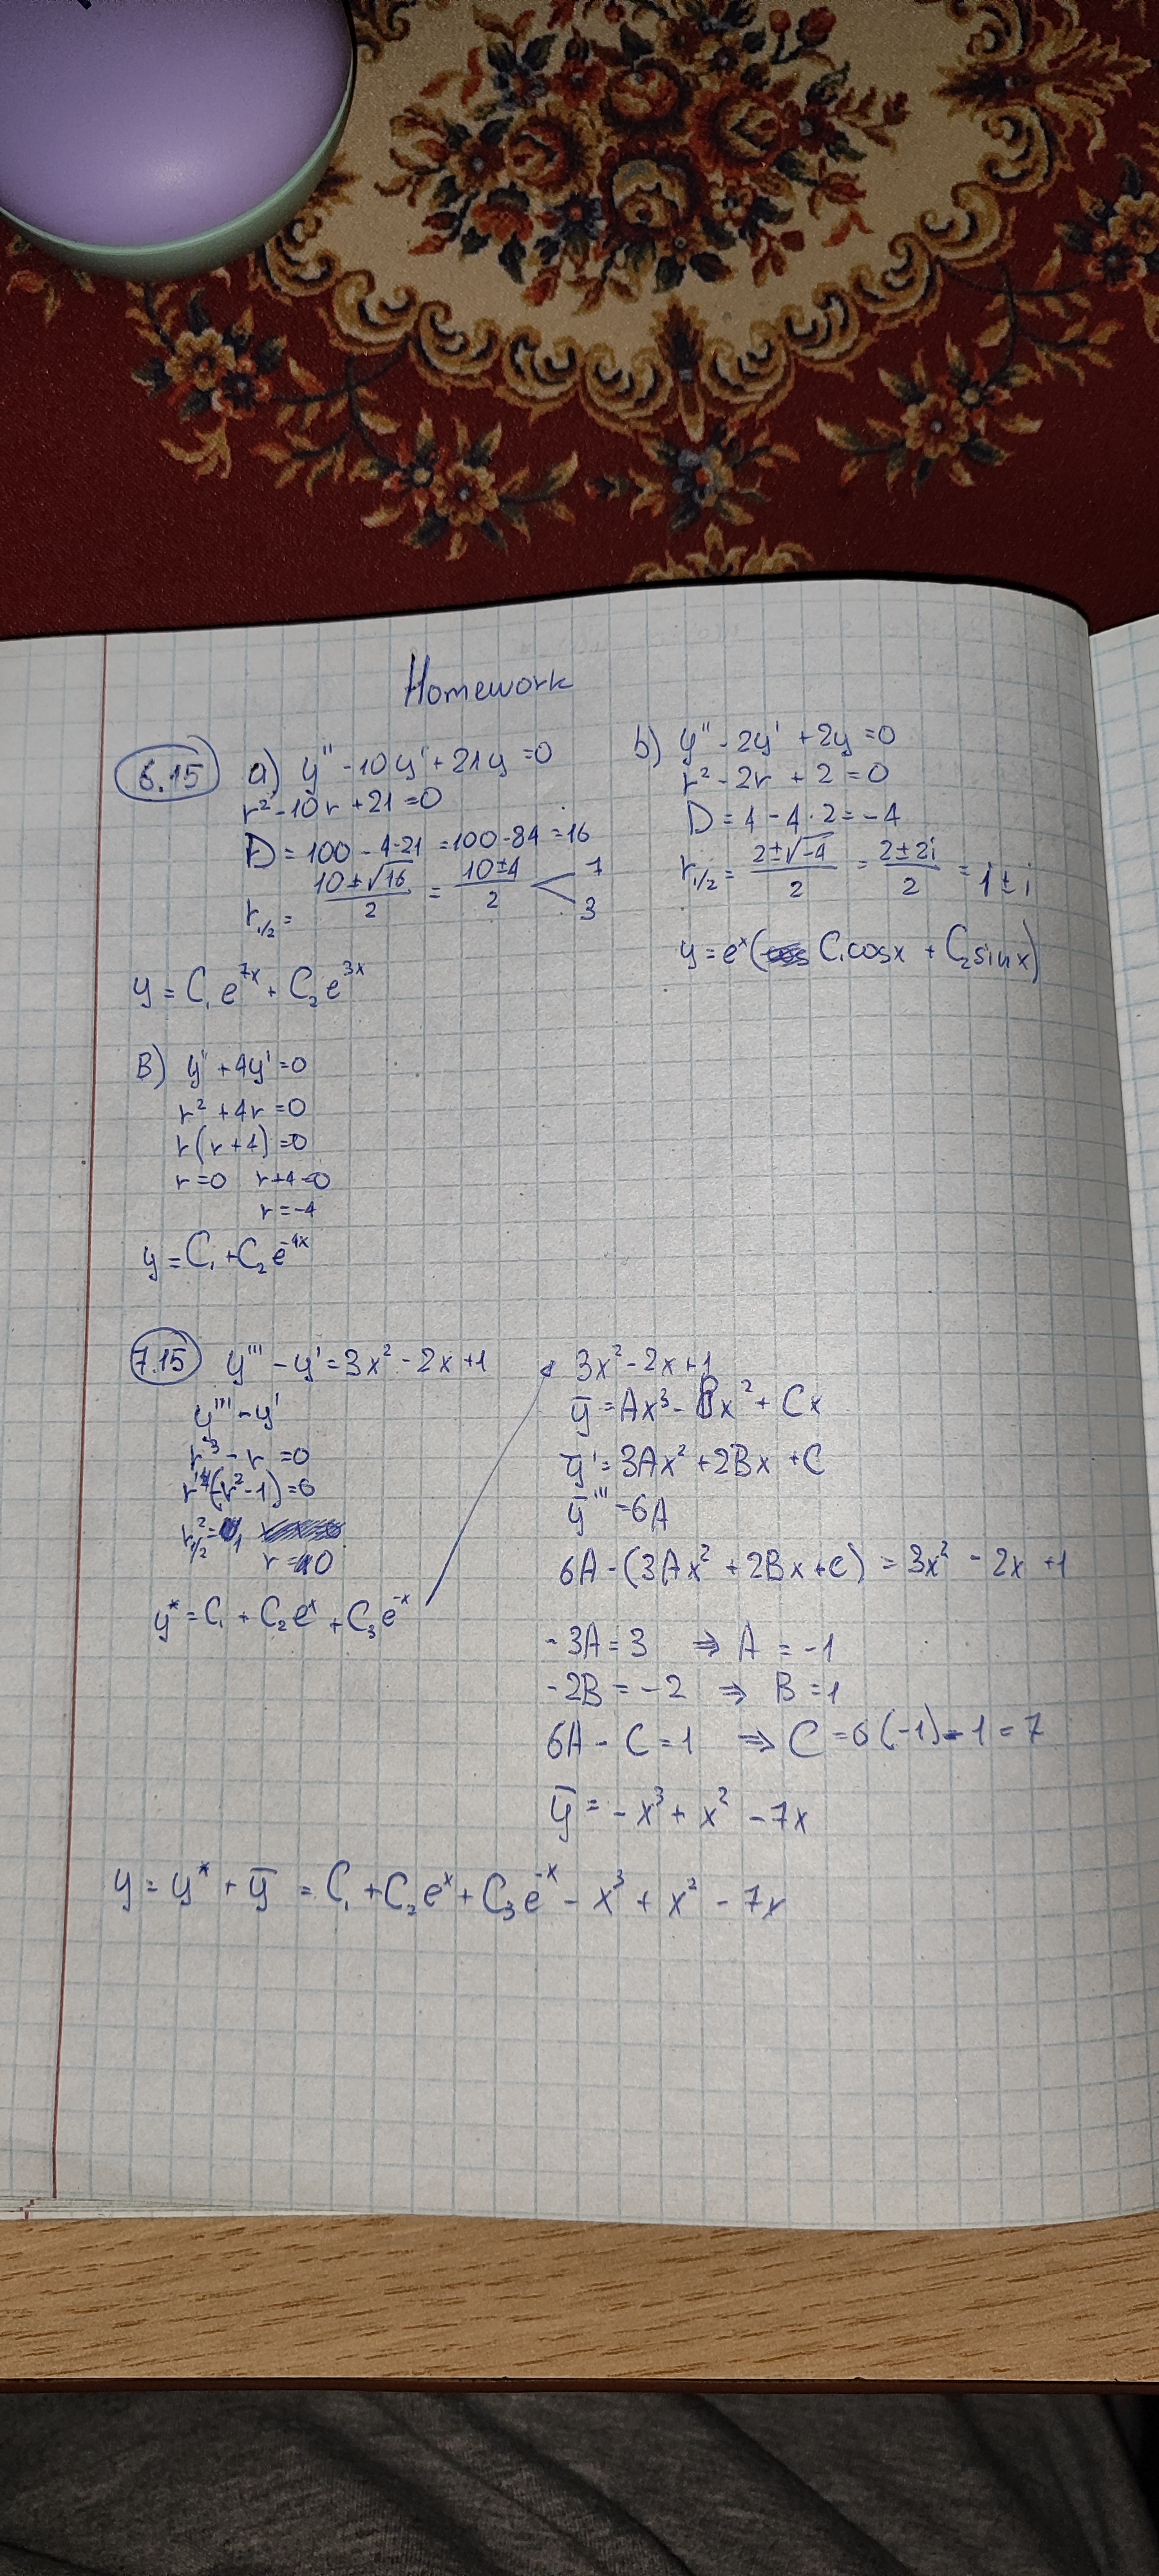 Homework
6.15 a) y'' - 10y' + 21y = 0
r² - 10r + 21 = 0
D = 100 - 4·21 = 100 - 84 = 16
r₁/₂ = (10 ± √16)/2 = (10 ± 4)/2 < 7 3
y = C₁e^7x + C₂e^3x
b) y'' - 2y' + 2y = 0
r² - 2r + 2 = 0
D = 4 - 4·2 = -4
r₁/₂ = (2 ± √-4)/2 = (2 ± 2i)/2 = 1 ± i
y = e^x(C₁cosx + C₂sinx)
B) y'' + 4y' = 0
r² + 4r = 0
r(r+4) = 0
r = 0 r+4 = 0
r = -4
y = C₁ + C₂e^-4x
7.15 y''' - y' = 3x² - 2x + 1
y''' - y'
r³ - r = 0
r(r² - 1) = 0
r²₁/₂ = 1
r = 0
y* = C₁ + C₂e^x + C₃e^-x
3x² - 2x + 1
ȳ = Ax³ - Bx² + Cx
ȳ' = 3Ax² + 2Bx + C
ȳ''' = 6A
6A - (3Ax² + 2Bx + C) = 3x² - 2x + 1
-3A = 3 ⇒ A = -1
-2B = -2 ⇒ B = 1
6A - C = 1 ⇒ C = 6(-1) - 1 = 7
ȳ = -x³ + x² - 7x
y = y* + ȳ = C₁ + C₂e^x + C₃e^-x - x³ + x² - 7x